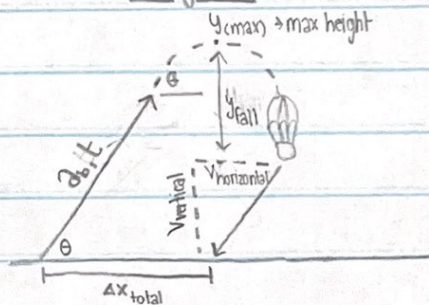 y(max) → max height
θ
yfall
ab, t
Vhorizontal
Vvertical
θ
Δxtotal